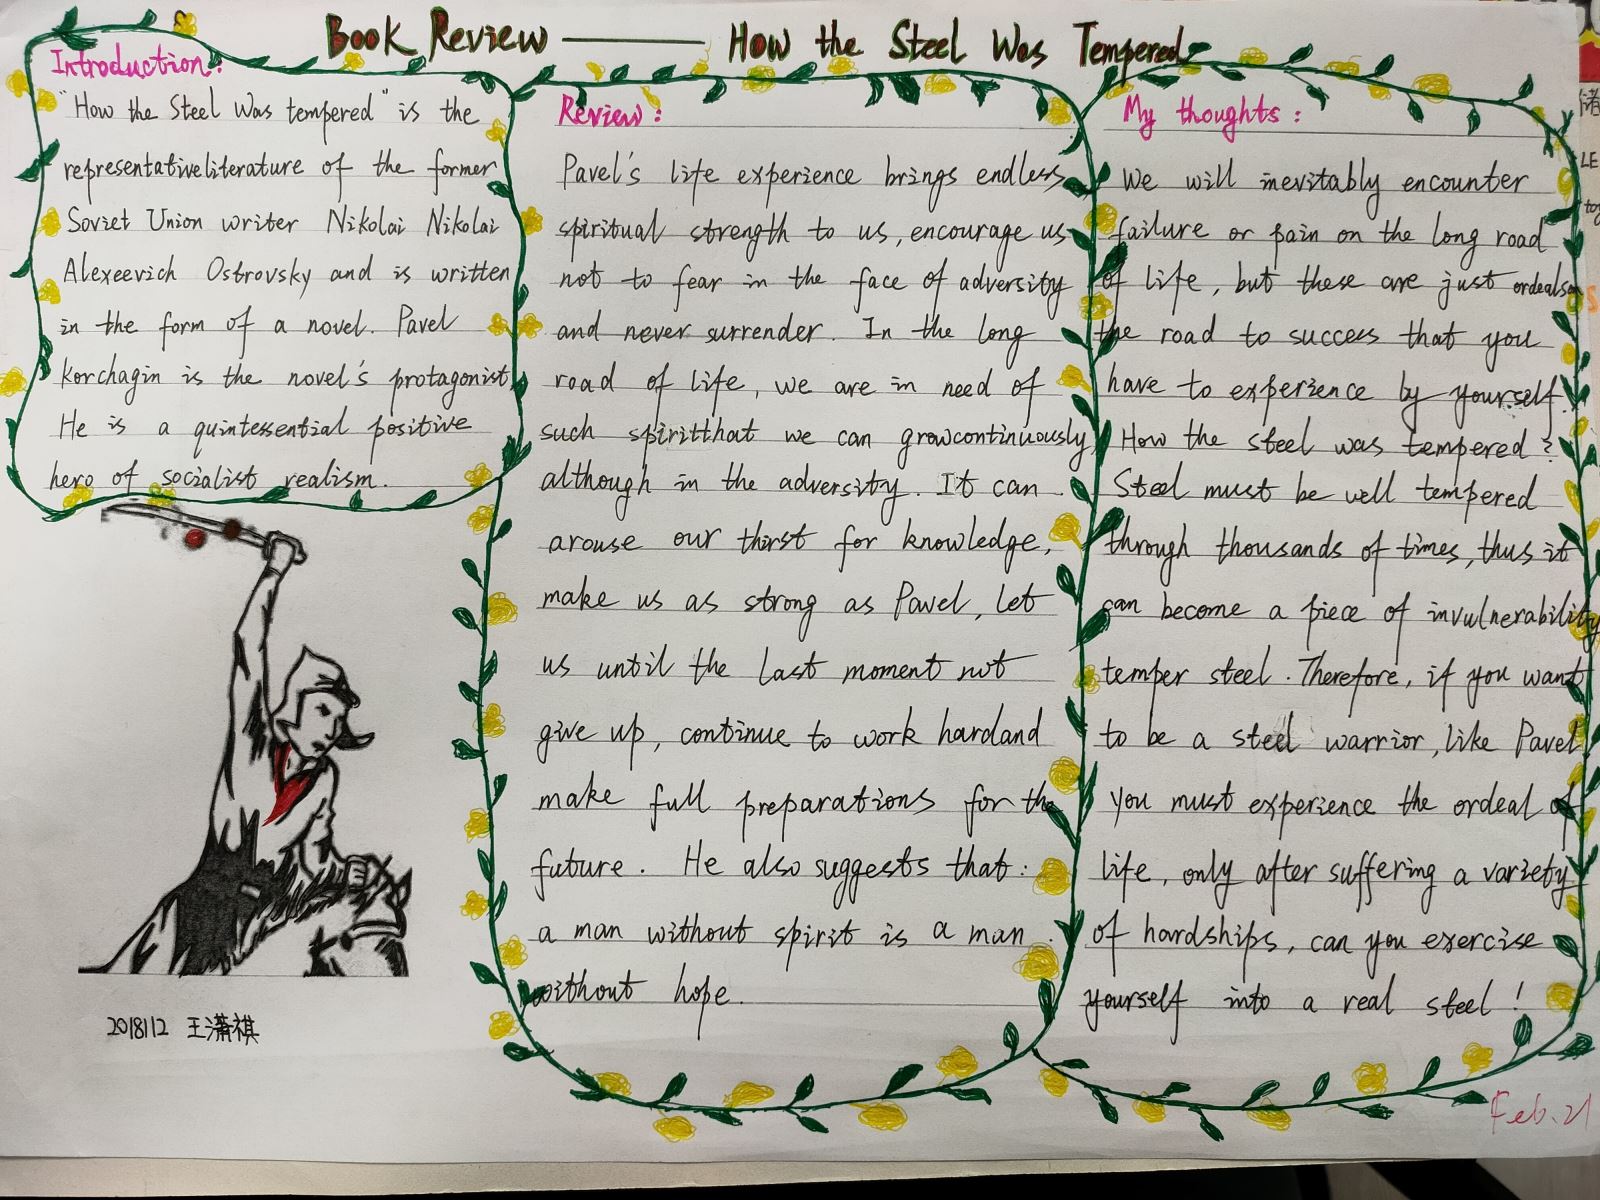 Book Review —— How the Steel Was Tempered
Introduction:
"How the Steel Was tempered" is the
representativeliterature of the former
Soviet Union writer Nikolai Nikolai
Alexeevich Ostrovsky and is written
in the form of a novel. Pavel
Korchagin is the novel's protagonist
He is a quintessential positive
hero of socialist realism.
2018112 王潇祺
Review:
Pavel's life experience brings endless
spiritual strength to us, encourage us
not to fear in the face of adversity
and never surrender. In the long
road of life, we are in need of
such spiritthat we can growcontinuously
although in the adversity. It can
arouse our thirst for knowledge,
make us as strong as Pavel, let
us until the last moment not
give up, continue to work hardand
make full preparations for the
future. He also suggests that:
a man without spirit is a man
without hope.
My thoughts:
We will inevitably encounter
failure or pain on the long road
of life, but these are just ordealson
the road to success that you
have to experience by yourself.
How the steel was tempered?
Steel must be well tempered
through thousands of times, thus it
can become a piece of invulnerability
temper steel. Therefore, if you want
to be a steel warrior, like Pavel
you must experience the ordeal of
life, only after suffering a variety
of hardships, can you exercise
yourself into a real steel!
Feb. 21
LE